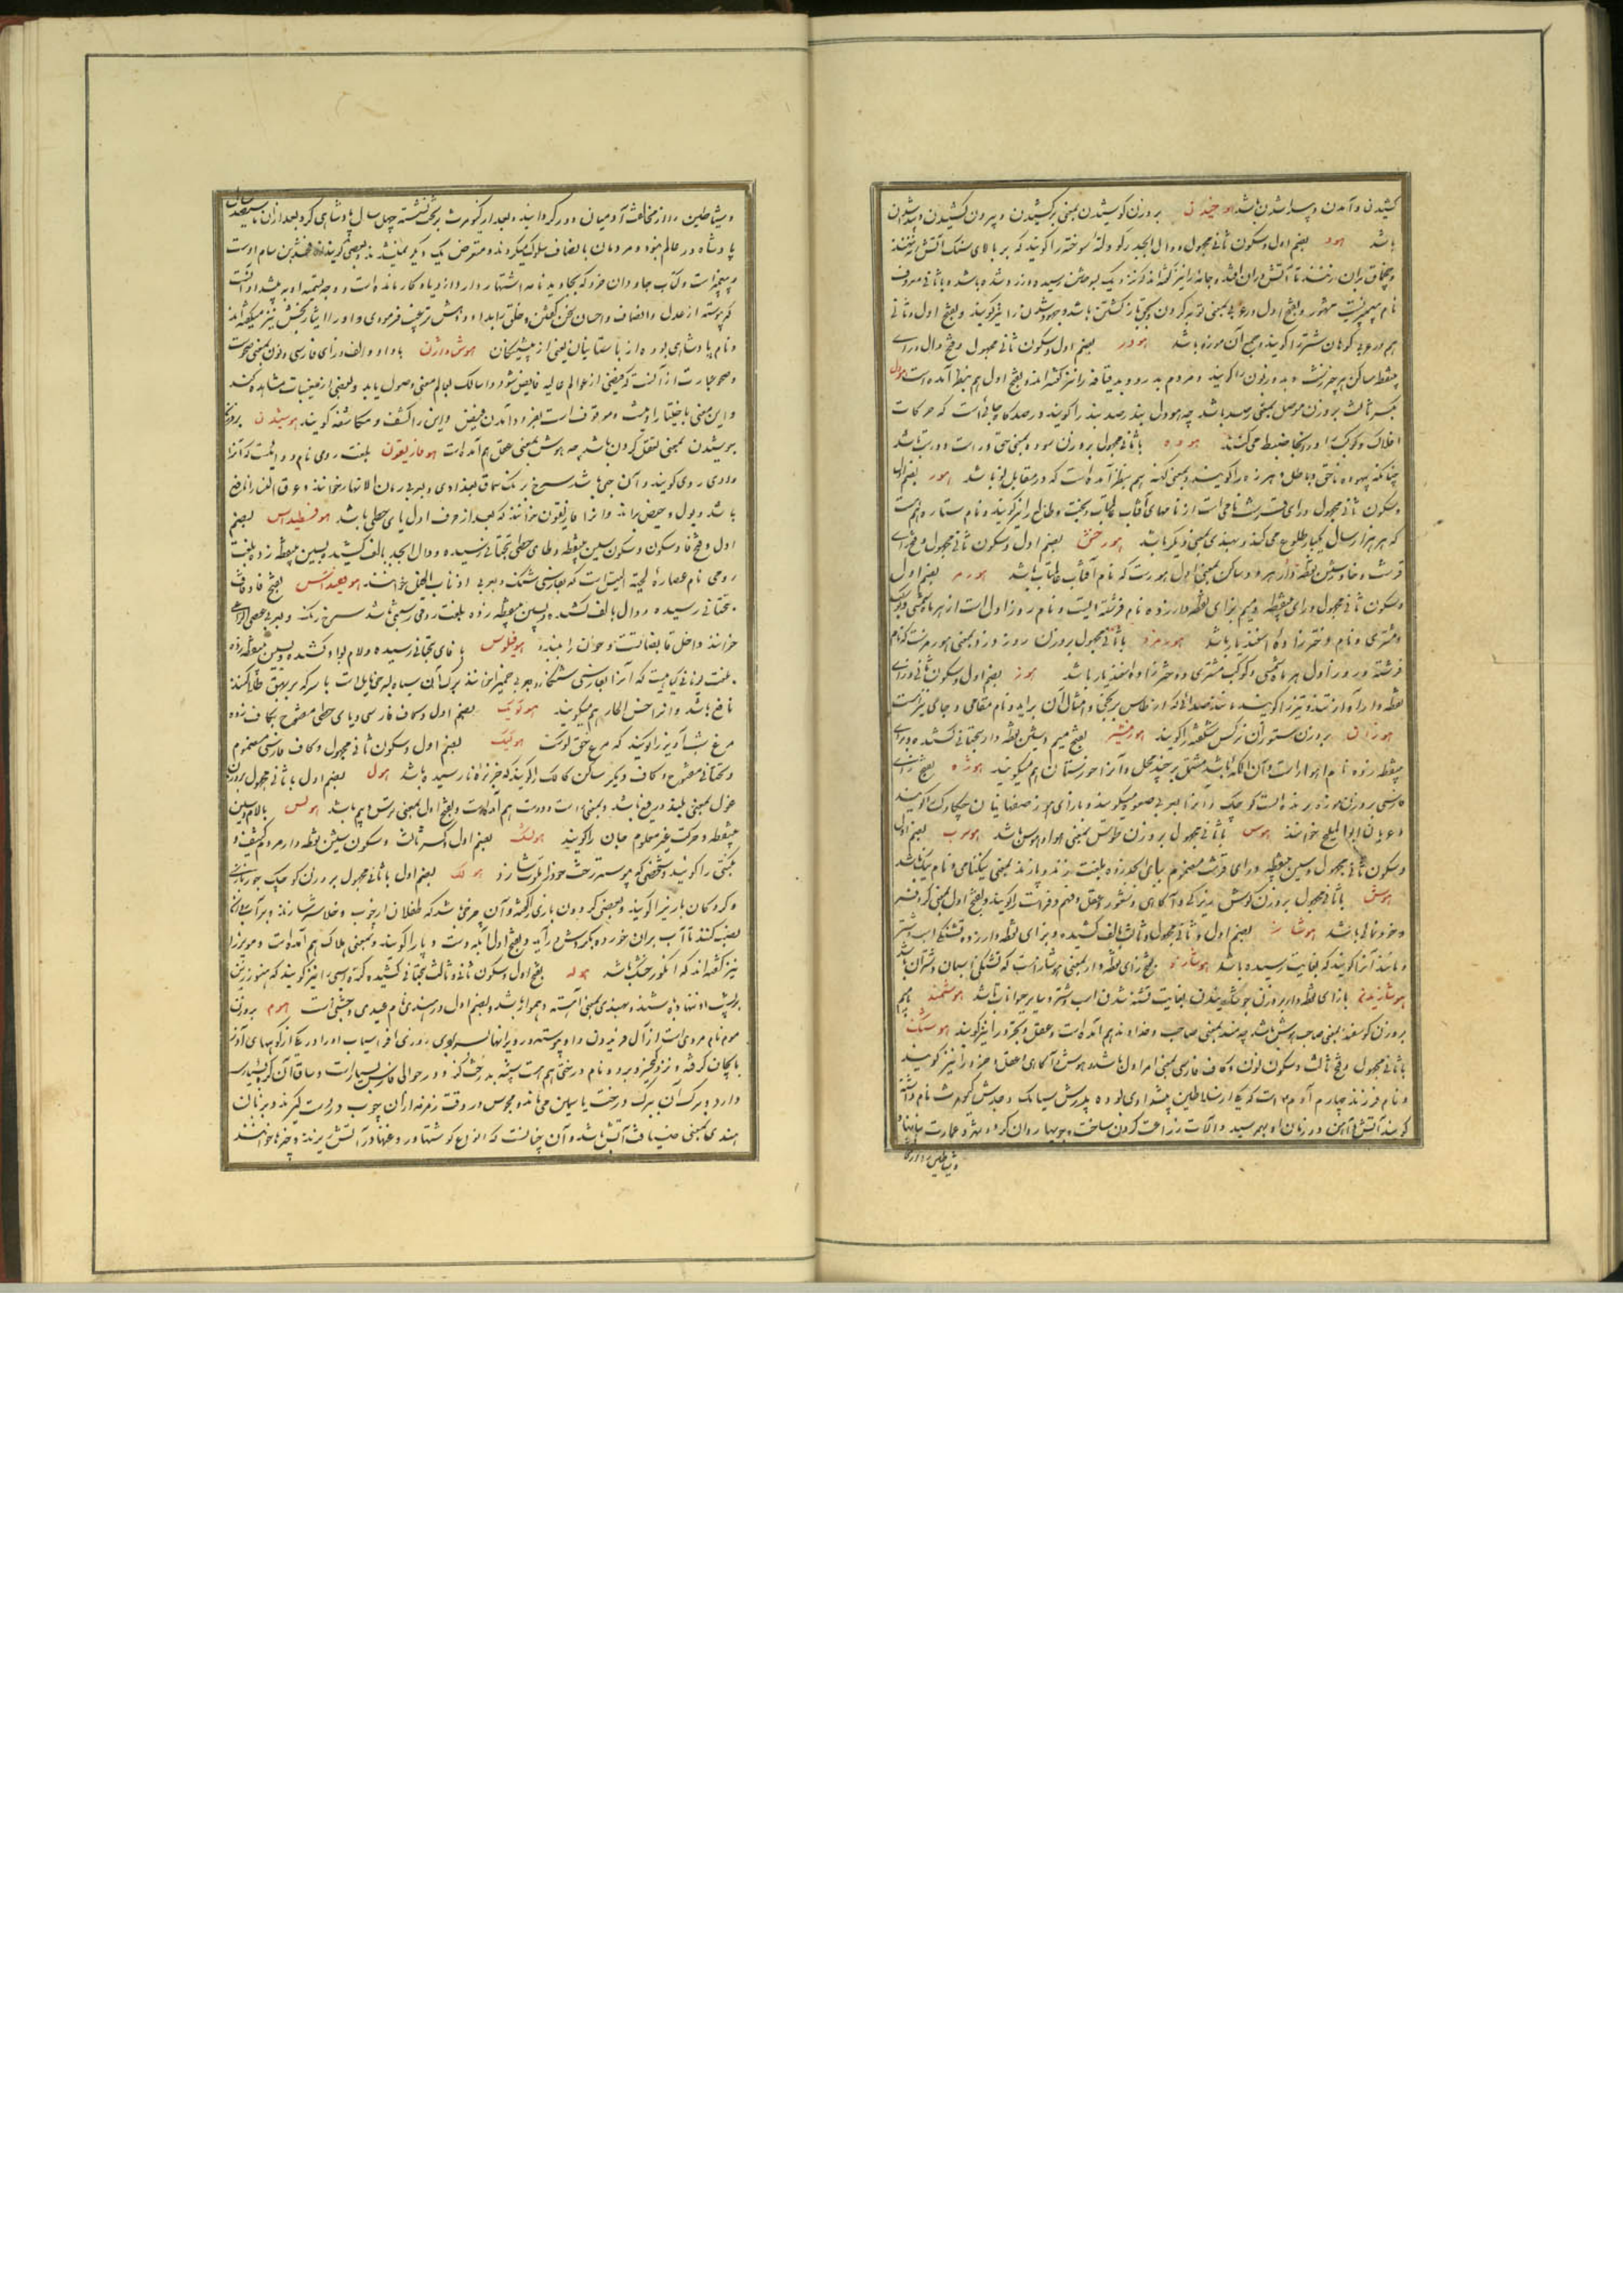 کشیدن و آمدن و پیدا شدن باشد هوخیدن بر وزن کوشیدن بمعنی برکشیدن و بیرون کشیدن
باشد هود بضم اول و سکون ثانی مجهول و دال ابجد رکو و لتهٔ سوخته را کویند که بر بالای سنک آتش زنه نهند
و چخماق بران زنند تا آتش دران افتد و جامهٔ را نیز کفته‌اند که نزدیک بسوختن رسیده و زرد شده باشد و با ثانی معروف
نام پیغمبریست مشهور و بفتح اول در عربی بمعنی توبه کردن و بحق بازکشتن باشد و جهودشدن را نیز کویند و بفتح اول و ثانی
هم در عربی کوهان شتر را کویند و جمع آن هوده باشد هودر بضم اول و سکون ثانی مجهول و فتح دال و رای
بینقطه ساکن هر چیز زشت و بد و زبون را کویند و مردم بد رو و بد قیافه را نیز کفته‌اند و بفتح اول هم بنظر آمده است هودل
بکسر ثالث بر وزن موصل بمعنی رصد باشد چه هودل بند رصد بند را کویند و رصد کاه جائی است که حرکات
افلاک و کواکب را در انجا ضبط می کنند هوده با ثانی مجهول بر وزن سوده بمعنی حق و راست و درست باشد
چنانکه بیهوده ناحق و باطل و هرزه را کویند و بمعنی کهنه هم بنظر آمده است که در مقابل نو باشد هور بضم اول
و سکون ثانی مجهول و رای قرشت نامی است از نامهای آفتاب عالمتاب و بخت و طالع را نیز کویند و نام ستاره هم هست
که هر هزار سال یکبار طلوع می کند و بهندی بمعنی دیکر باشد هورخش بضم اول و سکون ثانی مجهول و فتح رای
قرشت و خا و شین نقطه‌دار هر دو ساکن بمعنی اول هورست که نام آفتاب عالمتاب باشد هورمز بضم اول
و سکون ثانی مجهول و رای بینقطه و میم بزای نقطه دار زده نام فرشته ایست و نام روز اول است از هر ماه شمسی و کوکب
مشتری و نام دخترزاده اسفندیار باشد هورمزد با ثانی مجهول بر وزن روز دزد بمعنی هورمزست که نام
فرشته و روز اول هر ماه شمسی و کوکب مشتری و دخترزاده اسفندیار باشد هوز بضم اول و سکون ثانی و زای
نقطه‌دار آواز تند و تیز را کویند مانند صدائی که از طاس برنجی و امثال آن برآید و نام مقامی و جای نیز هست
هوزان بر وزن سوزان نرکس شکفته را کویند هورمشیر بفتح میم و شین نقطه دار بتحتانی کشیده و برای
بینقطه زده نام اهواز است و آن الکه باشد مشتمل بر چند محل و آنرا خوزستان هم میکویند هوژه بفتح زای
فارسی بر وزن موزه پرنده است کوچک و آنرا بعربی صعوه میکویند و بازای هوز صفاهانیان چکاوک را کویند
و عربان ابوالملیح خوانند هوس با ثانی مجهول بر وزن طوس بمعنی هوا و هوس باشد هوسرب بضم اول
و سکون ثانی مجهول و سین بینقطه و رای قرشت مضموم ببای ابجد زده بلغت زند و پازند بمعنی نیکنامی و نام نیک باشد
هوش با ثانی مجهول بر وزن کوش زیرکی و آکاهی و شعور و عقل و فهم و فراست را کویند و بفتح اول بمعنی کر و فر
و خودنمائی باشد هوشاز بضم اول و ثانی مجهول و ثالث بالف کشیده و بزای نقطه دار زده تشنکی اسب و شتر
و مانند آنرا کویند که بغایت رسیده باشد هوشازه بفتح زای نقطه دار بمعنی هوشازست که تشنکی اسبان و شتران باشد
هوشازیدن بازای نقطه دار بر وزن جوشانیدن بغایت تشنه شدن اسب و شتر و سایر حیوانات باشد هوشمند با میم
بر وزن کوسفند بمعنی صاحب هوش باشد چه مند بمعنی صاحب و خداوند هم آمده است و عقل و بخرد را نیز کویند هوشنک
با ثانی مجهول و فتح ثالث و سکون نون و کاف فارسی بمعنی امر اول باشد و هوش و آکاهی و عقل و خرد را نیز کویند
و نام فرزند چهارم آدم است که یکی از سلاطین پیشدادی بوده پدرش سیامک و جدش کیومرث نام داشته
کویند آتش و آهن در زمان او بهمرسید و آلات زراعت کردن ساخت و جویها روان کرد و شهر و عمارت بنا نهاد
و شیاطین را از
و شیاطین را از مخالفت آدمیان دور کردانید و بعد از کیومرث بر تخت نشسته چهل سال پادشاهی کرد و بعد ازان تا سیصد سال
پادشاه در عالم نبود و مردمان بانصاف سلوک میکردند و متعرض یک دیکر نمیشدند و بعضی کویند ارفخشد بن سام اوست
و پیغمبر است و کتاب جاودان خرد که بجاویدنامه اشتهار دارد از و یادکار مانده است و وجه تسمیه او به پیشداد آنست
که پیوسته از عدل و انصاف و احسان سخن کفتی و خلق را بداد و دهش ترغیب فرمودی و او را ایثار بخش نیز میکفته‌اند
و نام پادشاهی بوده از باستانیان یعنی از پیشینکان هوش‌واژن با واو و الف و زای فارسی و نون بمعنی صحو است
و صحو عبارت از آنست که فیضی از عوالم عالیه فایض شود و سالک بعالم معنی وصول یابد و بعضی از مغیبات مشاهده کند
و این معنی باختیار او نیست و موقوف است بفرود آمدن فیض و این را کشف و مکاشفه کویند هوشیدن بر وزن
پوشیدن بمعنی تعقل کردن باشد چه هوش بمعنی عقل هم آمده است هوفاریقون بلغت رومی نام دوائیست که آنرا
دادی رومی کویند و آن حبی باشد سرخ رنک سماق بغدادی و بعربی رمان الانهار خوانند و عرق النسا را نافع
باشد و بول و حیض براند و آنرا هیوفاریقون خوانند که بعد از حرف اول یای حطی باشد هوفسطیداس بضم
اول و فتح فا و سکون و سکون سین بینقطه و طای حطی بتحتانی رسیده و دال ابجد بالف کشیده و بسین بینقطه زده بلغت
رومی نام عصارهٔ لحیة التیس است که بفارسی شنک و بعربی اذناب الخیل خوانند هوفیداس بفتح فا و قاف
بتحتانی رسیده و دال بالف کشیده و بسین بینقطه زده بلغت رومی رستنی باشد سرخ رنک و بعربی عصی الراعی
خوانند و اخل قابضاتست و خون را ببندد هوفیلوس با فای بتحتانی رسیده و لام بواو کشیده و بسین بینقطه زده
بلغت یونانی کیاهیست که آنرا بفارسی شنکار و بعربی حمیرا خوانند برک آن سیاه بسرخی مایل است با سرکه بر بهق طلا کنند
نافع باشد و آنرا خس الحمار هم میکویند هوکیک بضم اول و سکاف فارسی و یای حطی مفتوح بکاف زده
مرغ شب‌آویز را کویند که مرغ حق کوست هوکیک بضم اول و سکون ثانی مجهول و کاف فارسی مضموم
و تحتانی مفتوح و کاف دیکر ساکن کالک را کویند که خربزهٔ نارسیده باشد هول بضم اول با ثانی مجهول بر وزن
غول بمعنی بلند و رفیع باشد و بمعنی راست و درست هم آمده است و بفتح اول بمعنی ترس و بیم باشد هولس با لام و سین
بینقطه و حرکت غیر معلوم جهان را کویند هولک بضم اول و کسر ثالث و سکون شین نقطه دار مردم کثیف و
نکبتی را کویند و شخصی که پیوسته رخت خود را ملوث سازد هولک بضم اول با ثانی مجهول بر وزن کوچک جوز بازی
و کردکان بازی را کویند و بعضی کردون بازی کفته‌اند و آن چرخی باشد که طفلان از چوب و خلاشه سازند و بر آب روان
نصب کنند تا آب بران خورده بکردش درآید و بفتح اول آبله دست و پا را کویند و بمعنی هلاک هم آمده است و مویز را
نیز کفته‌اند که انکور خشک باشد هوله بفتح اول و سکون ثانی و ثالث بتحتانی کشیده کره اسبی را نیز کویند که هنوز زین
برپشت او ننهاده باشند و بهندی بمعنی آهسته و هموار باشد و بضم اول در هندی نام عیدی و جشنی است هوم بر وزن
موم نام مردی است از آل فریدون و او پیوسته در ویرانها بسر بردی روزی افراسیاب او را در یکی از کوههای آذر
بایجان کرفته و زو کریخته بود و نام درختی هم هست شبیه بدرخت کز و در حوالی فارس بسیار است و ساق آن کره بسیار
دارد و برک آن ببرک درخت یاسمین می‌ماند و مجوس در وقت زمزمه ازان چوب در دست کیرند و بزبان
هندی بمعنی ضیافت آتش باشد و آن چنانست که انواع کوشتها و روغنها در آتش ریزند و چیزها خوانند